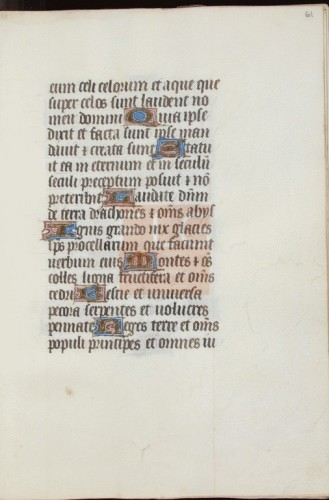 61
eum celi celorum et aque que
super celos sunt laudent no
men domini Quia ipse
dixit et facta sunt ipse man
dauit ⁊ creata sunt Statu
it ea in eternum et in seculū
seculi preceptum posuit ⁊ nō
preteribit Laudate dn̄m
de terra drachones ⁊ om̄s abys
Ignis grando nix glacies
sp̄s procellarum que faciunt
uerbum eius Montes ⁊ oēs
colles ligna fructifera et om̄s
cedri Bestie et uniuersa
pecora serpentes et uolucres
pennate Reges terre et om̄s
populi principes et omnes iu